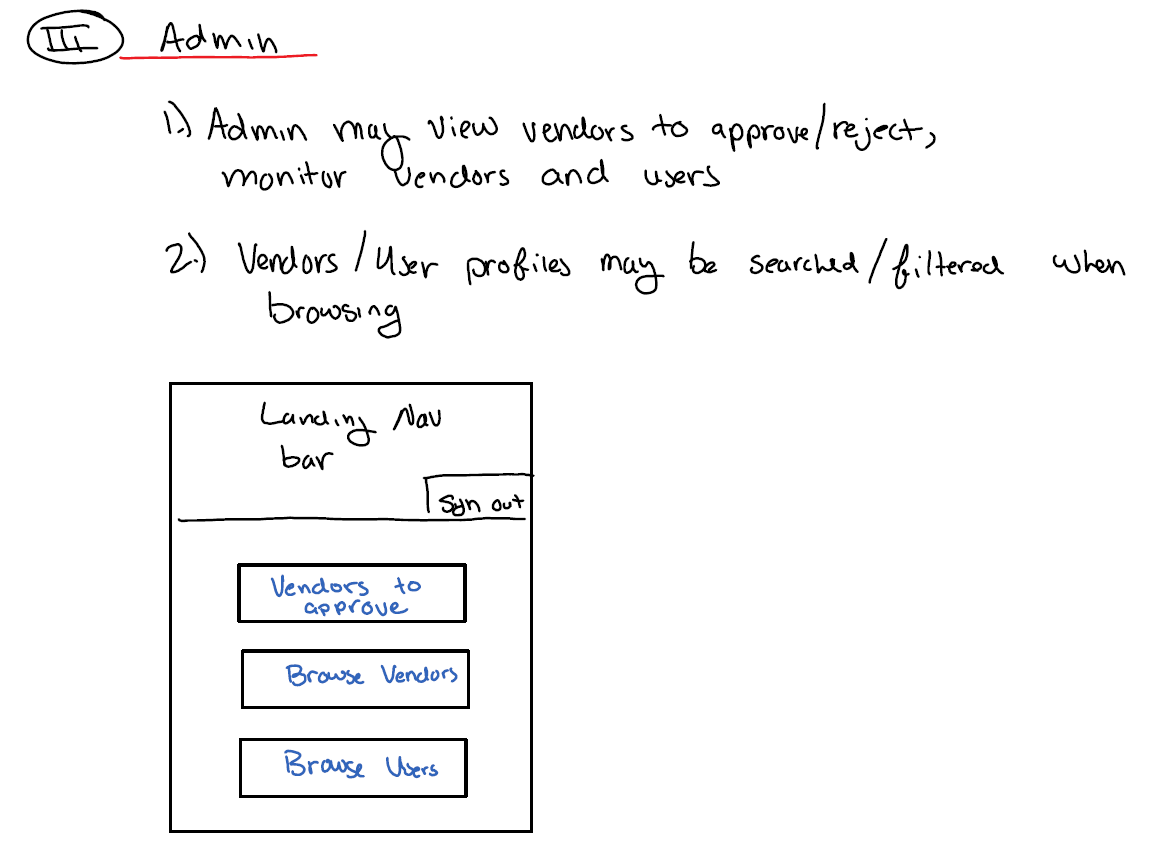 III Admin
1.) Admin may view vendors to approve/reject,
monitor vendors and users
2.) Vendors/User profiles may be searched/filtered when
browsing
Landing Nav
bar
Sign out
Vendors to
approve
Browse Vendors
Browse Users